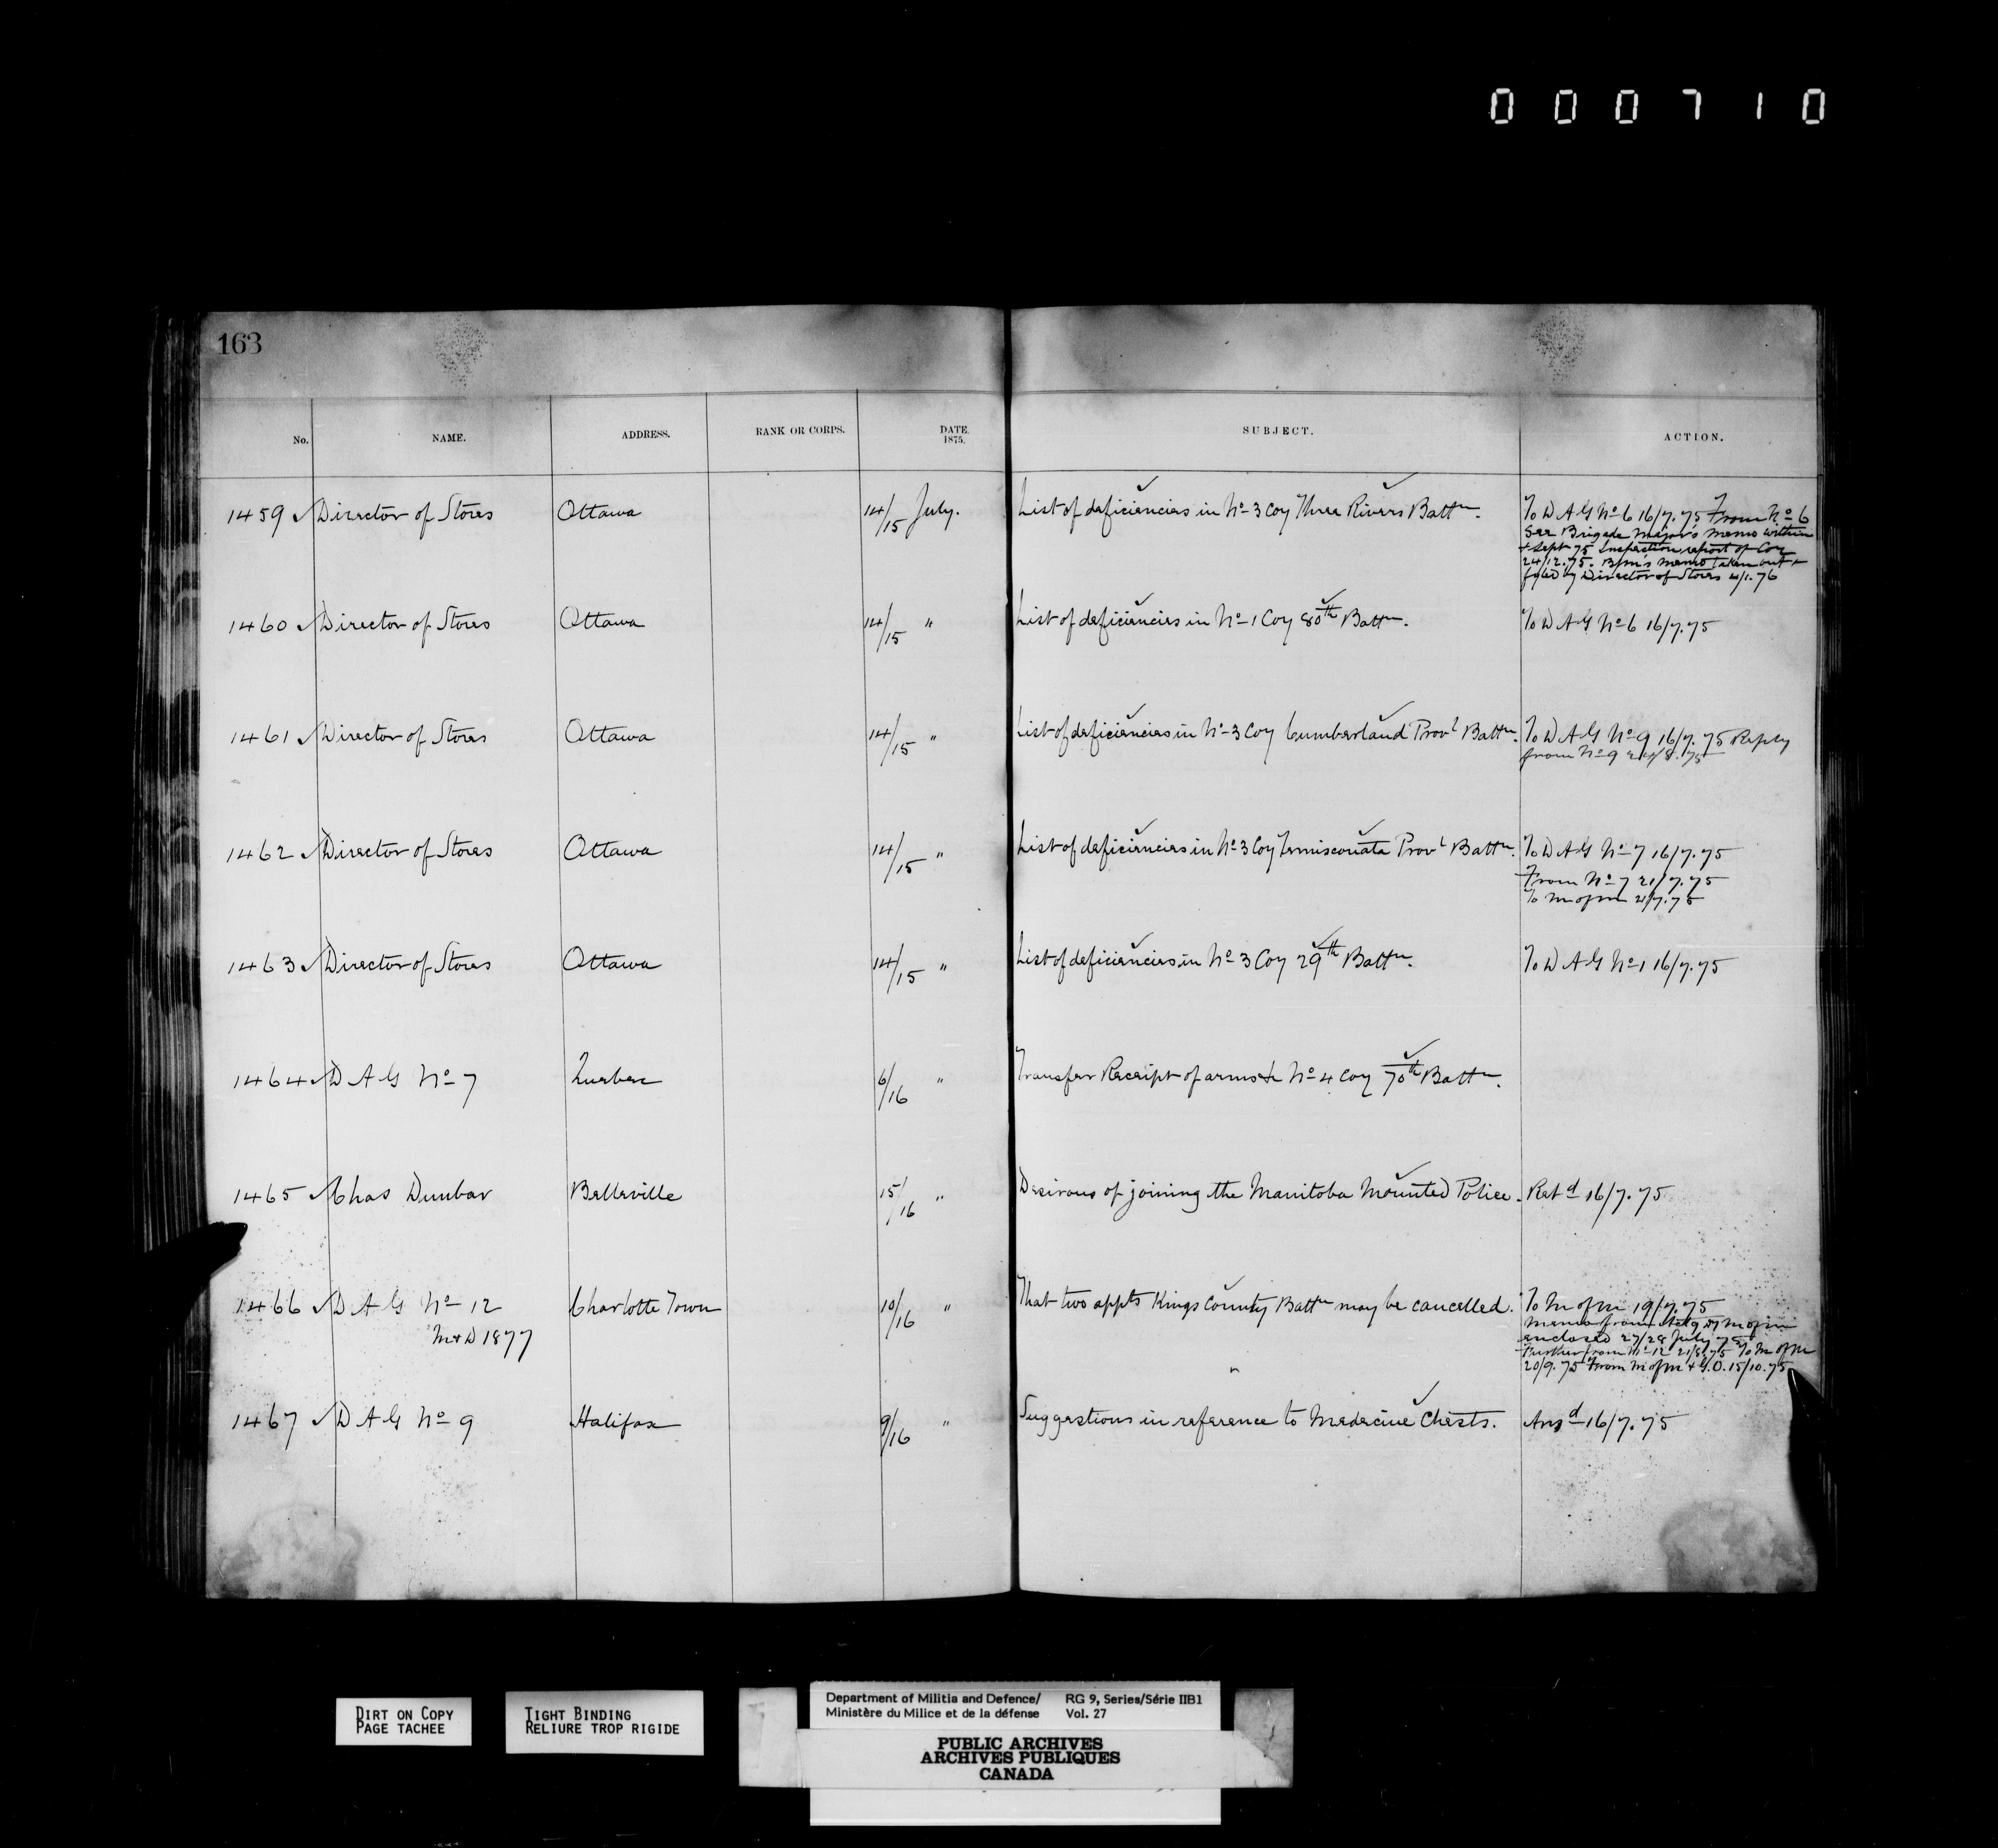 000710
163
No. NAME. ADDRESS. RANK OR CORPS. DATE. 1875. SUBJECT. ACTION.
1459 Director of Stores Ottawa 14/15 July. List of deficiencies in No 3 Coy Three Rivers Battn. To D A G No 6 16/7.75 From No 6
See Brigade Major's memo within
+ Sept 75 Inspection report of Coy
24/12.75. B/m's memo taken out +
fyled by Director of Stores 4/1.76
1460 Director of Stores Ottawa 14/15 " List of deficiencies in No 1 Coy 80th Battn. To D A G No 6 16/7.75
1461 Director of Stores Ottawa 14/15 " List of deficiencies in No 3 Coy Cumberland Provl Battn. To D A G No 9 16/7.75 Reply
from No 9 24/8.75
1462 Director of Stores Ottawa 14/15 " List of deficiencies in No 3 Coy Temiscouata Provl Battn. To D A G No 7 16/7.75
From No 7 21/7.75
To M of M 21/7.75
1463 Director of Stores Ottawa 14/15 " List of deficiencies in No 3 Coy 29th Battn. To D A G No 1 16/7.75
1464 D A G No 7 Quebec 6/16 " Transfer Receipt of arms &c No 4 Coy 70th Battn.
1465 Chas Dunbar Belleville 15/16 " Desirous of joining the Manitoba Mounted Police. Retd 16/7.75
1466 D A G No 12 Charlotte Town 10/16 " That two appts Kings County Battn may be cancelled. To M of M 19/7.75
M & D 1877 Memo from Actg Dy M of M
enclosed 27/28 July 75
Further from No 12 21/8.75 To M of M
20/9.75 From M of M + G.O. 15/10.75
1467 D A G No 9 Halifax 9/16 " Suggestions in reference to Medecine Chests. Ansd 16/7.75
DIRT ON COPY
PAGE TACHEE
TIGHT BINDING
RELIURE TROP RIGIDE
Department of Militia and Defence/ RG 9, Series/Série IIB1
Ministère du Milice et de la défense Vol. 27
PUBLIC ARCHIVES
ARCHIVES PUBLIQUES
CANADA